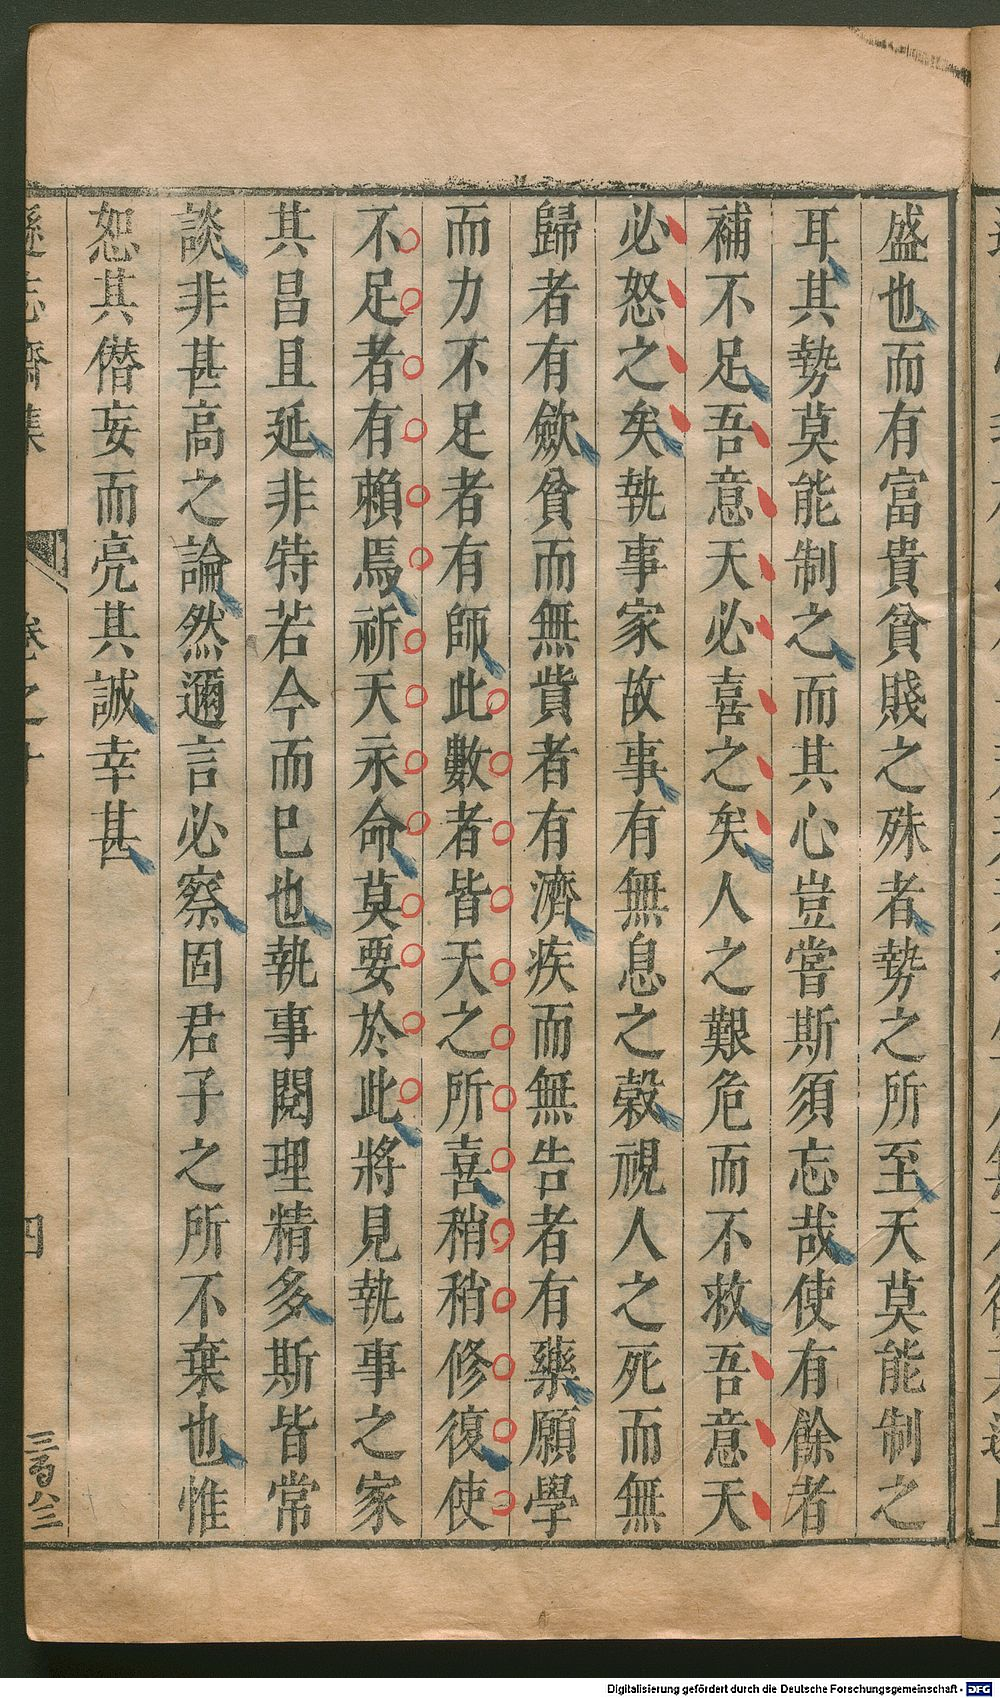 盛也而有富貴貧賤之殊者勢之所至天莫能制之
耳其勢莫能制之而其心豈嘗斯須忘哉使有餘者
補不足吾意天必喜之矣人之艱危而不救吾意天
必怒之矣執事家故事有無息之穀視人之死而無
歸者有斂貧而無貲者有濟疾而無告者有藥願學
而力不足者有師此數者皆天之所喜稍稍修復使
不足者有賴焉祈天永命莫要於此將見執事之家
其昌且延非特若今而已也執事閱理精多斯皆常
談非甚高之論然邇言必察固君子之所不棄也惟
恕其僭妄而亮其誠幸甚
遜志齋集
卷之十
四
Digitalisierung gefördert durch die Deutsche Forschungsgemeinschaft - DFG